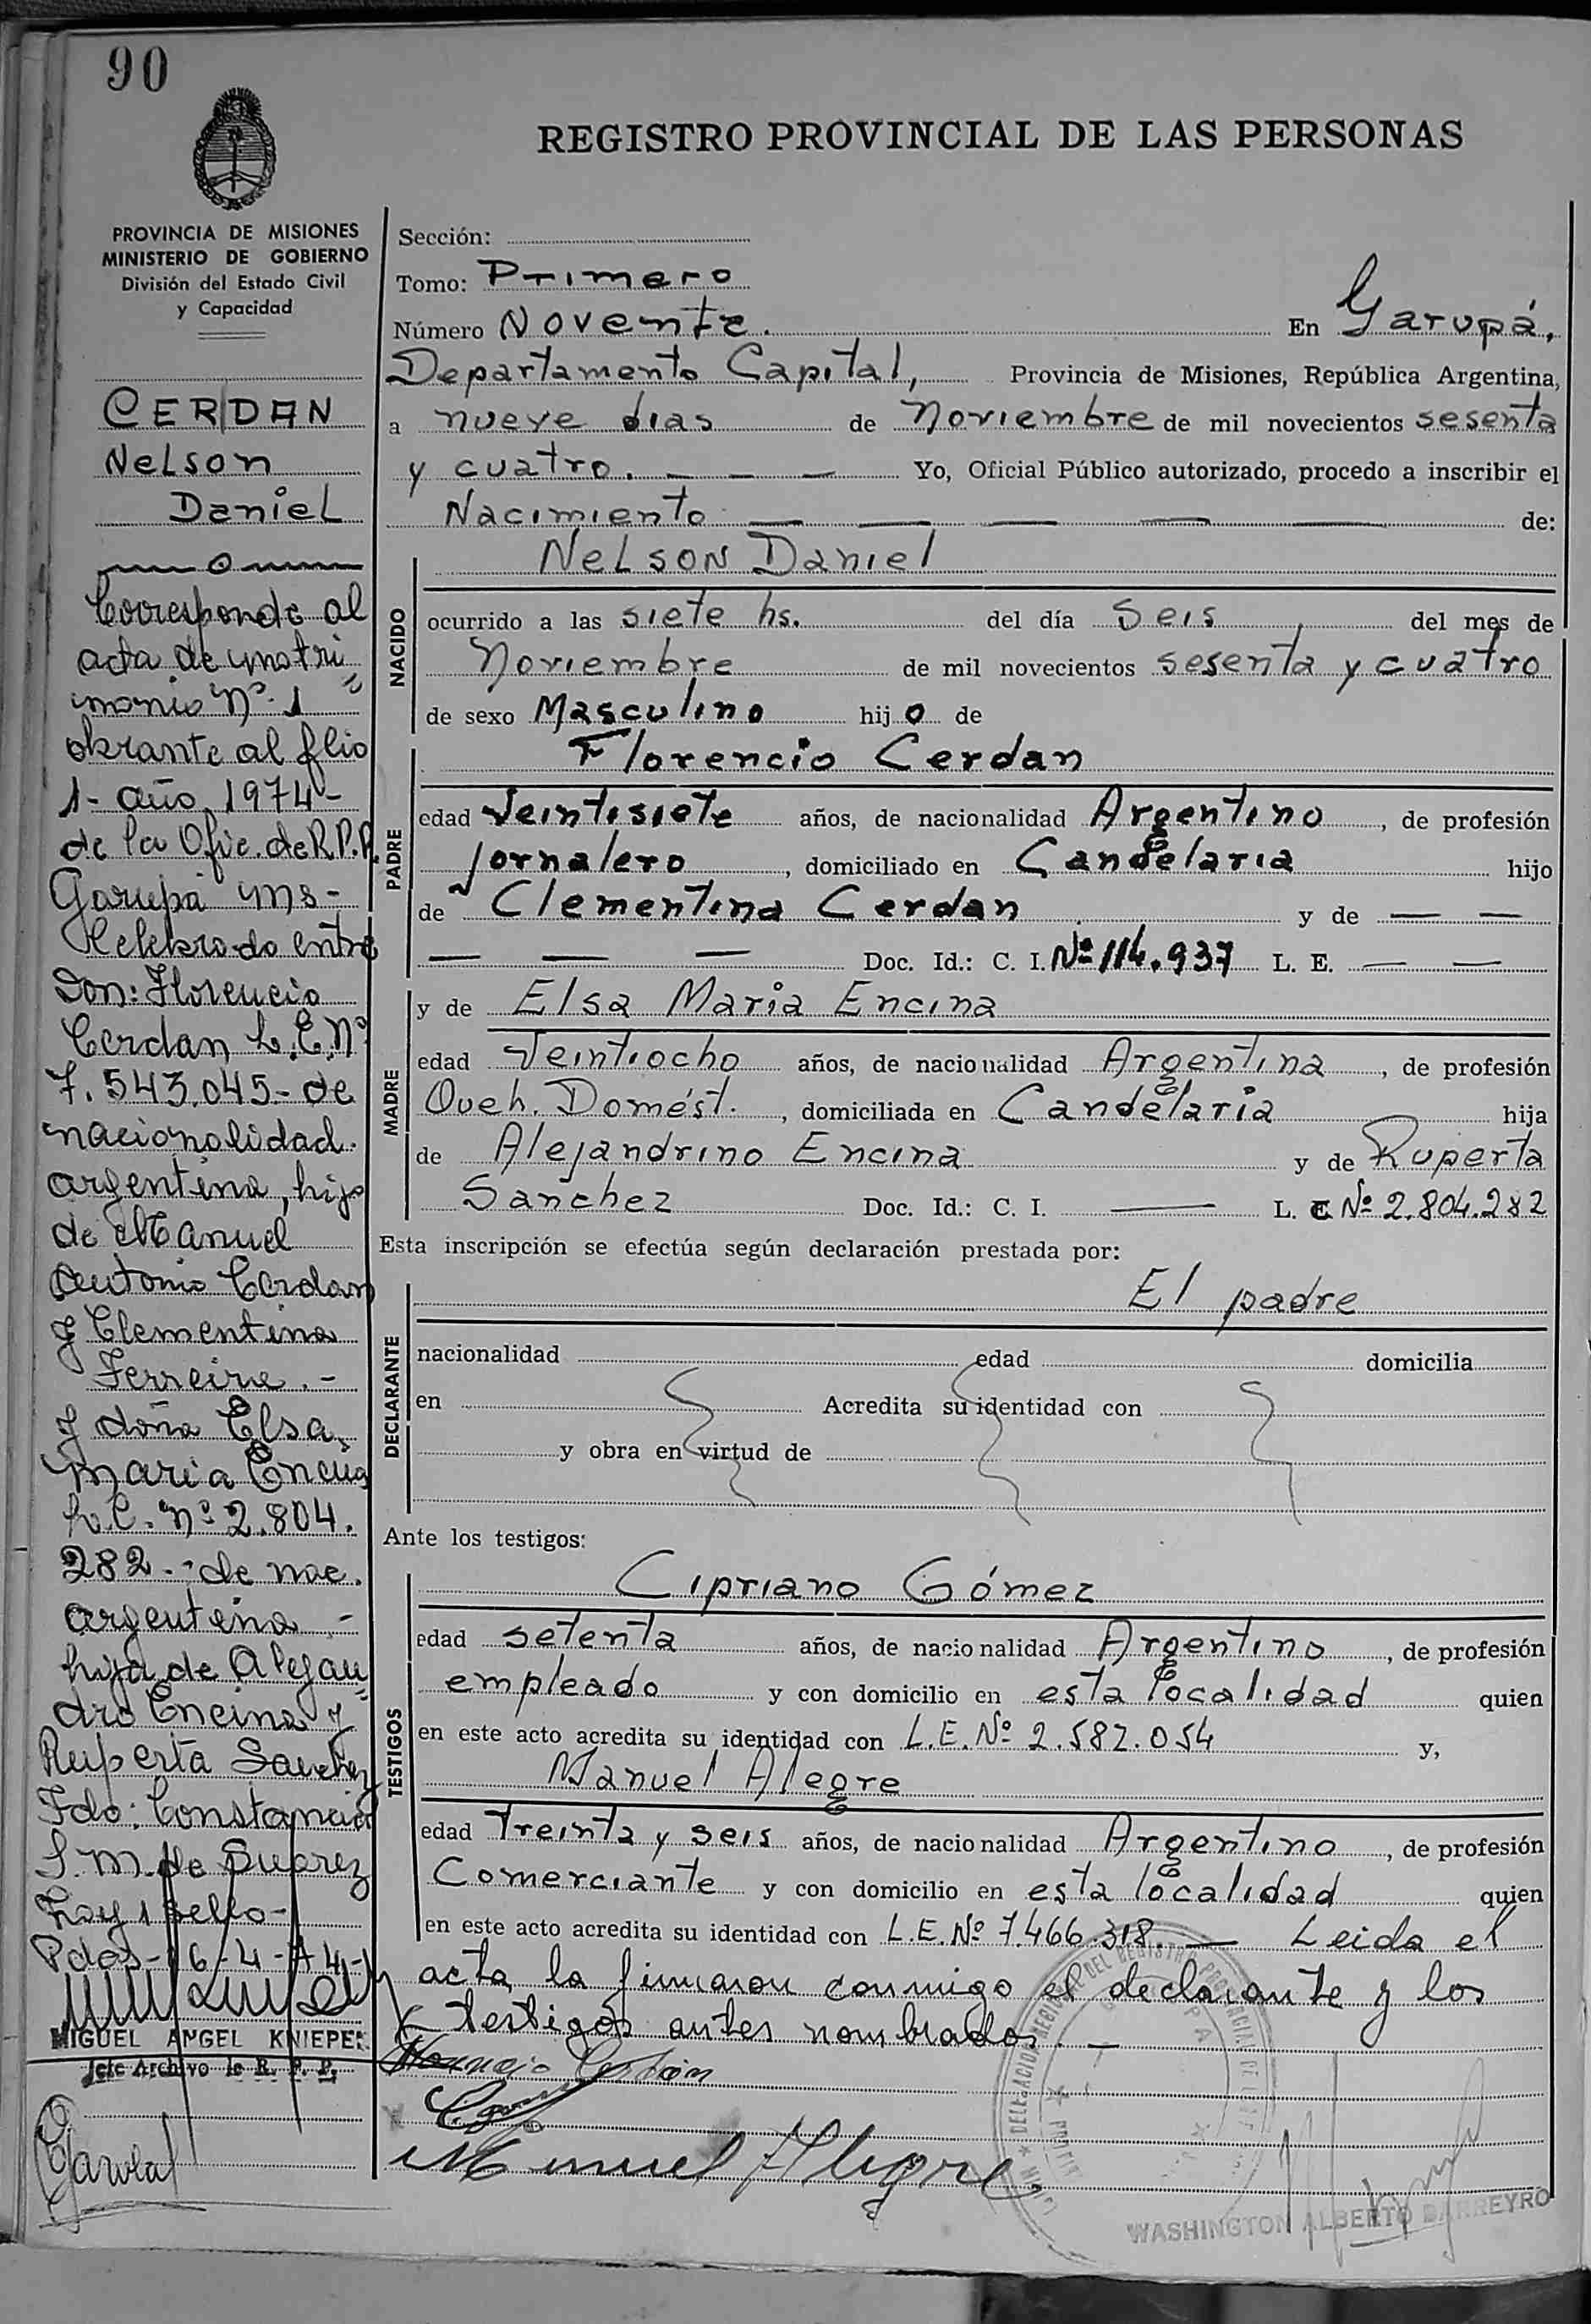 90
REGISTRO PROVINCIAL DE LAS PERSONAS
PROVINCIA DE MISIONES
MINISTERIO DE GOBIERNO
División del Estado Civil
y Capacidad
CERDAN
Nelson
Daniel
Corresponde al
acta de matri
monio Nº 1
obrante al flio
1- año 1974-
de la Ofic. de R.P.P.
Garupá Ms-
Celebrado entre
Don: Florencio
Cerdan L.E. Nº
7.543.045- de
nacionalidad
argentina, hijo
de Manuel
Antonio Cerdan
y Clementina
Ferreira.-
y doña Elsa
Maria Encina
L.C. Nº 2.804.
282.- de nac.
argentina -
hija de Alejan
dro Encina y
Ruperta Sanchez
Fdo: Constancia
S. M. de Suarez
Hay 1 sello-
Pdas- 6-4-74-
MIGUEL ANGEL KNIEPER
Jefe Archivo de R. P. P.
Sección:
Tomo: Primero
Número Noventa. En Garupá,
Departamento Capital, Provincia de Misiones, República Argentina,
a nueve dias de Noviembre de mil novecientos sesenta
y cuatro. Yo, Oficial Público autorizado, procedo a inscribir el
Nacimiento de:
NACIDO
Nelson Daniel
ocurrido a las siete hs. del día Seis del mes de
Noviembre de mil novecientos sesenta y cuatro
de sexo Masculino hijo de
PADRE
Florencio Cerdan
edad Veintisiete años, de nacionalidad Argentino, de profesión
Jornalero, domiciliado en Candelaria hijo
de Clementina Cerdan y de — —
— — — Doc. Id.: C. I. Nº 114.937 L. E. — —
MADRE
y de Elsa Maria Encina
edad Veintiocho años, de nacionalidad Argentina, de profesión
Queh. Domést., domiciliada en Candelaria hija
de Alejandrino Encina y de Ruperta
Sanchez Doc. Id.: C. I. — L. C Nº 2.804.282
Esta inscripción se efectúa según declaración prestada por:
DECLARANTE
El padre
nacionalidad edad domicilia
en Acredita su identidad con
y obra en virtud de
Ante los testigos:
TESTIGOS
Cipriano Gómez
edad setenta años, de nacionalidad Argentino, de profesión
empleado y con domicilio en esta localidad quien
en este acto acredita su identidad con L.E. Nº 2.582.054 y,
Manuel Alegre
edad Treinta y seis años, de nacionalidad Argentino, de profesión
Comerciante y con domicilio en esta localidad quien
en este acto acredita su identidad con L.E. Nº 7.466.318. — Leida el
acta la firmaron conmigo el declarante y los
testigos antes nombrados. —
Manuel Alegre
WASHINGTON ALBERTO BARREYRO